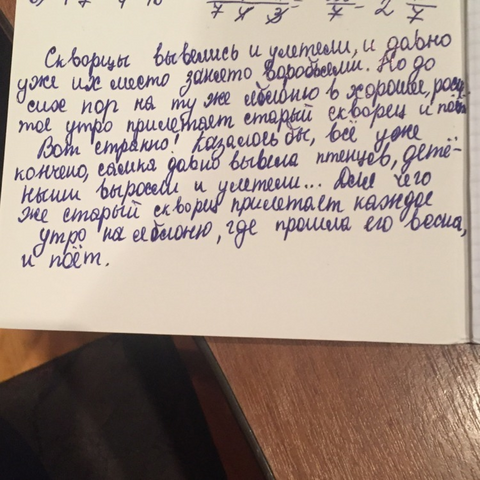 7 4 3 7 - 2 7
Скворцы вывелись и улетели, и давно
уже их место занято воробьями. Но до
сих пор на ту же яблоню в хорошее, роси-
тое утро прилетает старый скворец и поёт.
Вот странно! Казалось бы, всё уже
кончено, самка давно вывела птенцов, детё-
ныши выросли и улетели... Для чего
же старый скворец прилетает каждое
утро на яблоню, где прошла его весна,
и поёт.